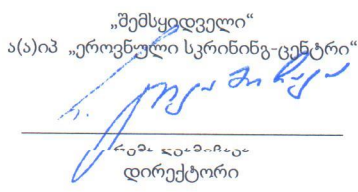 „შემსყიდველი“
ა(ა)იპ „ეროვნული სკრინინგ-ცენტრი“
დირექტორი